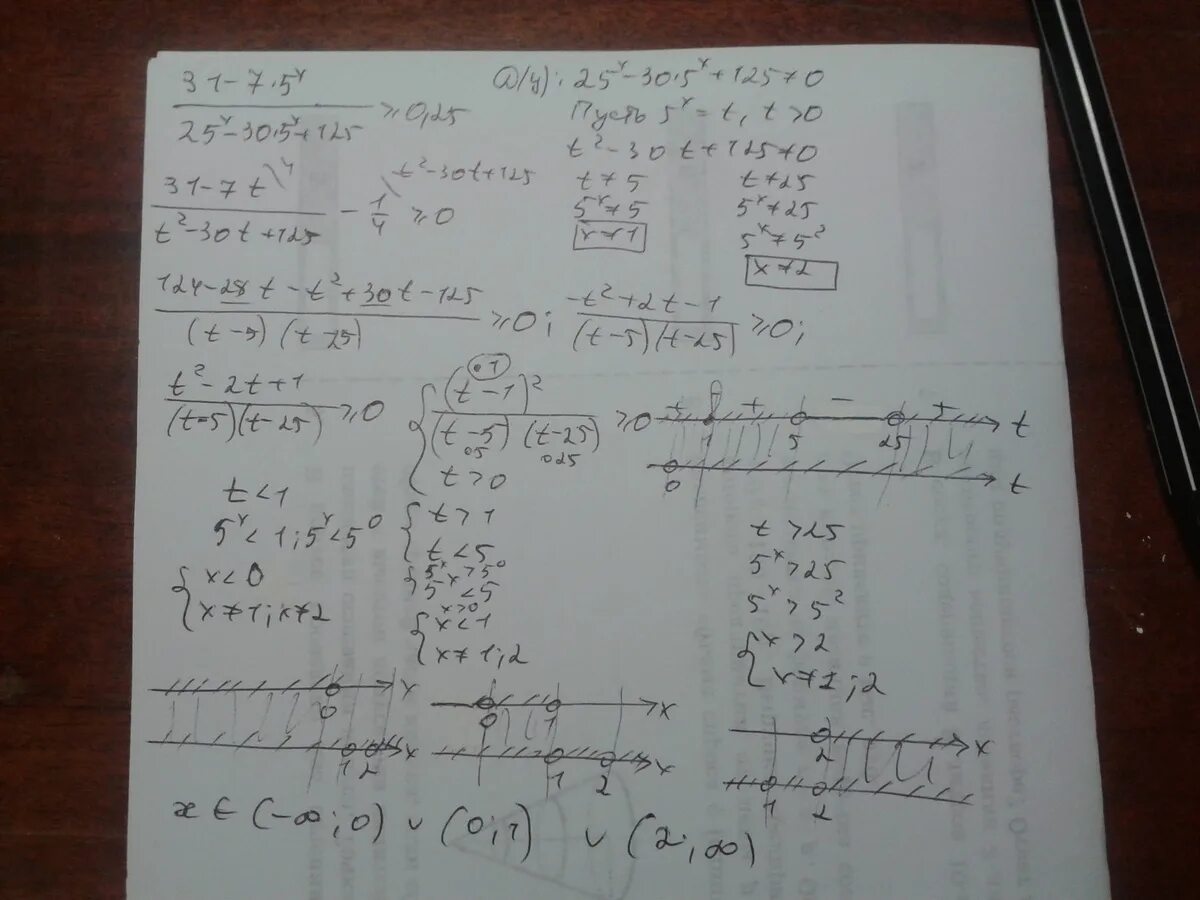 31-7·5ˣ / 25ˣ-30·5ˣ+125 ≥ 0,25
О/у): 25ˣ-30·5ˣ+125≠0
Пусть 5ˣ = t, t >0
t²-30t+125≠0
t≠5 t≠25
5ˣ≠5 5ˣ≠25
x≠1 5ˣ≠5²
x≠2
31-7t \4 / t²-30t+125 - 1/4 \t²-30t+125 ≥0
124-28t-t²+30t-125 / (t-5)(t-25) ≥0; -t²+2t-1 / (t-5)(t-25) ≥0;
t²-2t+1 / (t-5)(t-25) ≥0
{ (t-1)² / (t-5)(t-25) ≥0
·1
05 025
t>0
+ + - +
1 5 25 t
0 t
t<1
5ˣ<1; 5ˣ<5⁰
{ x<0
x≠1; x≠2
{ t>1
t<5
{ 5ˣ>5⁰
5ˣ<5
x>0
{ x<1
x≠1;2
t>25
5ˣ>25
5ˣ>5²
{ x>2
x≠1;2
0 x
1 2 x
0 1 x
1 2 x
2 x
1 2
x ∈ (-∞;0) ∪ (0;1) ∪ (2;∞)